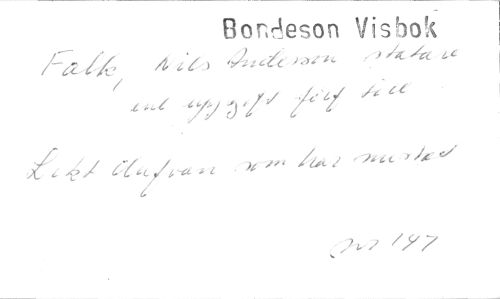 Bondeson Visbok
Falk, Nils Andersson statare
enl uppgift förf till
Likt dufvan som har mistat
nr 147